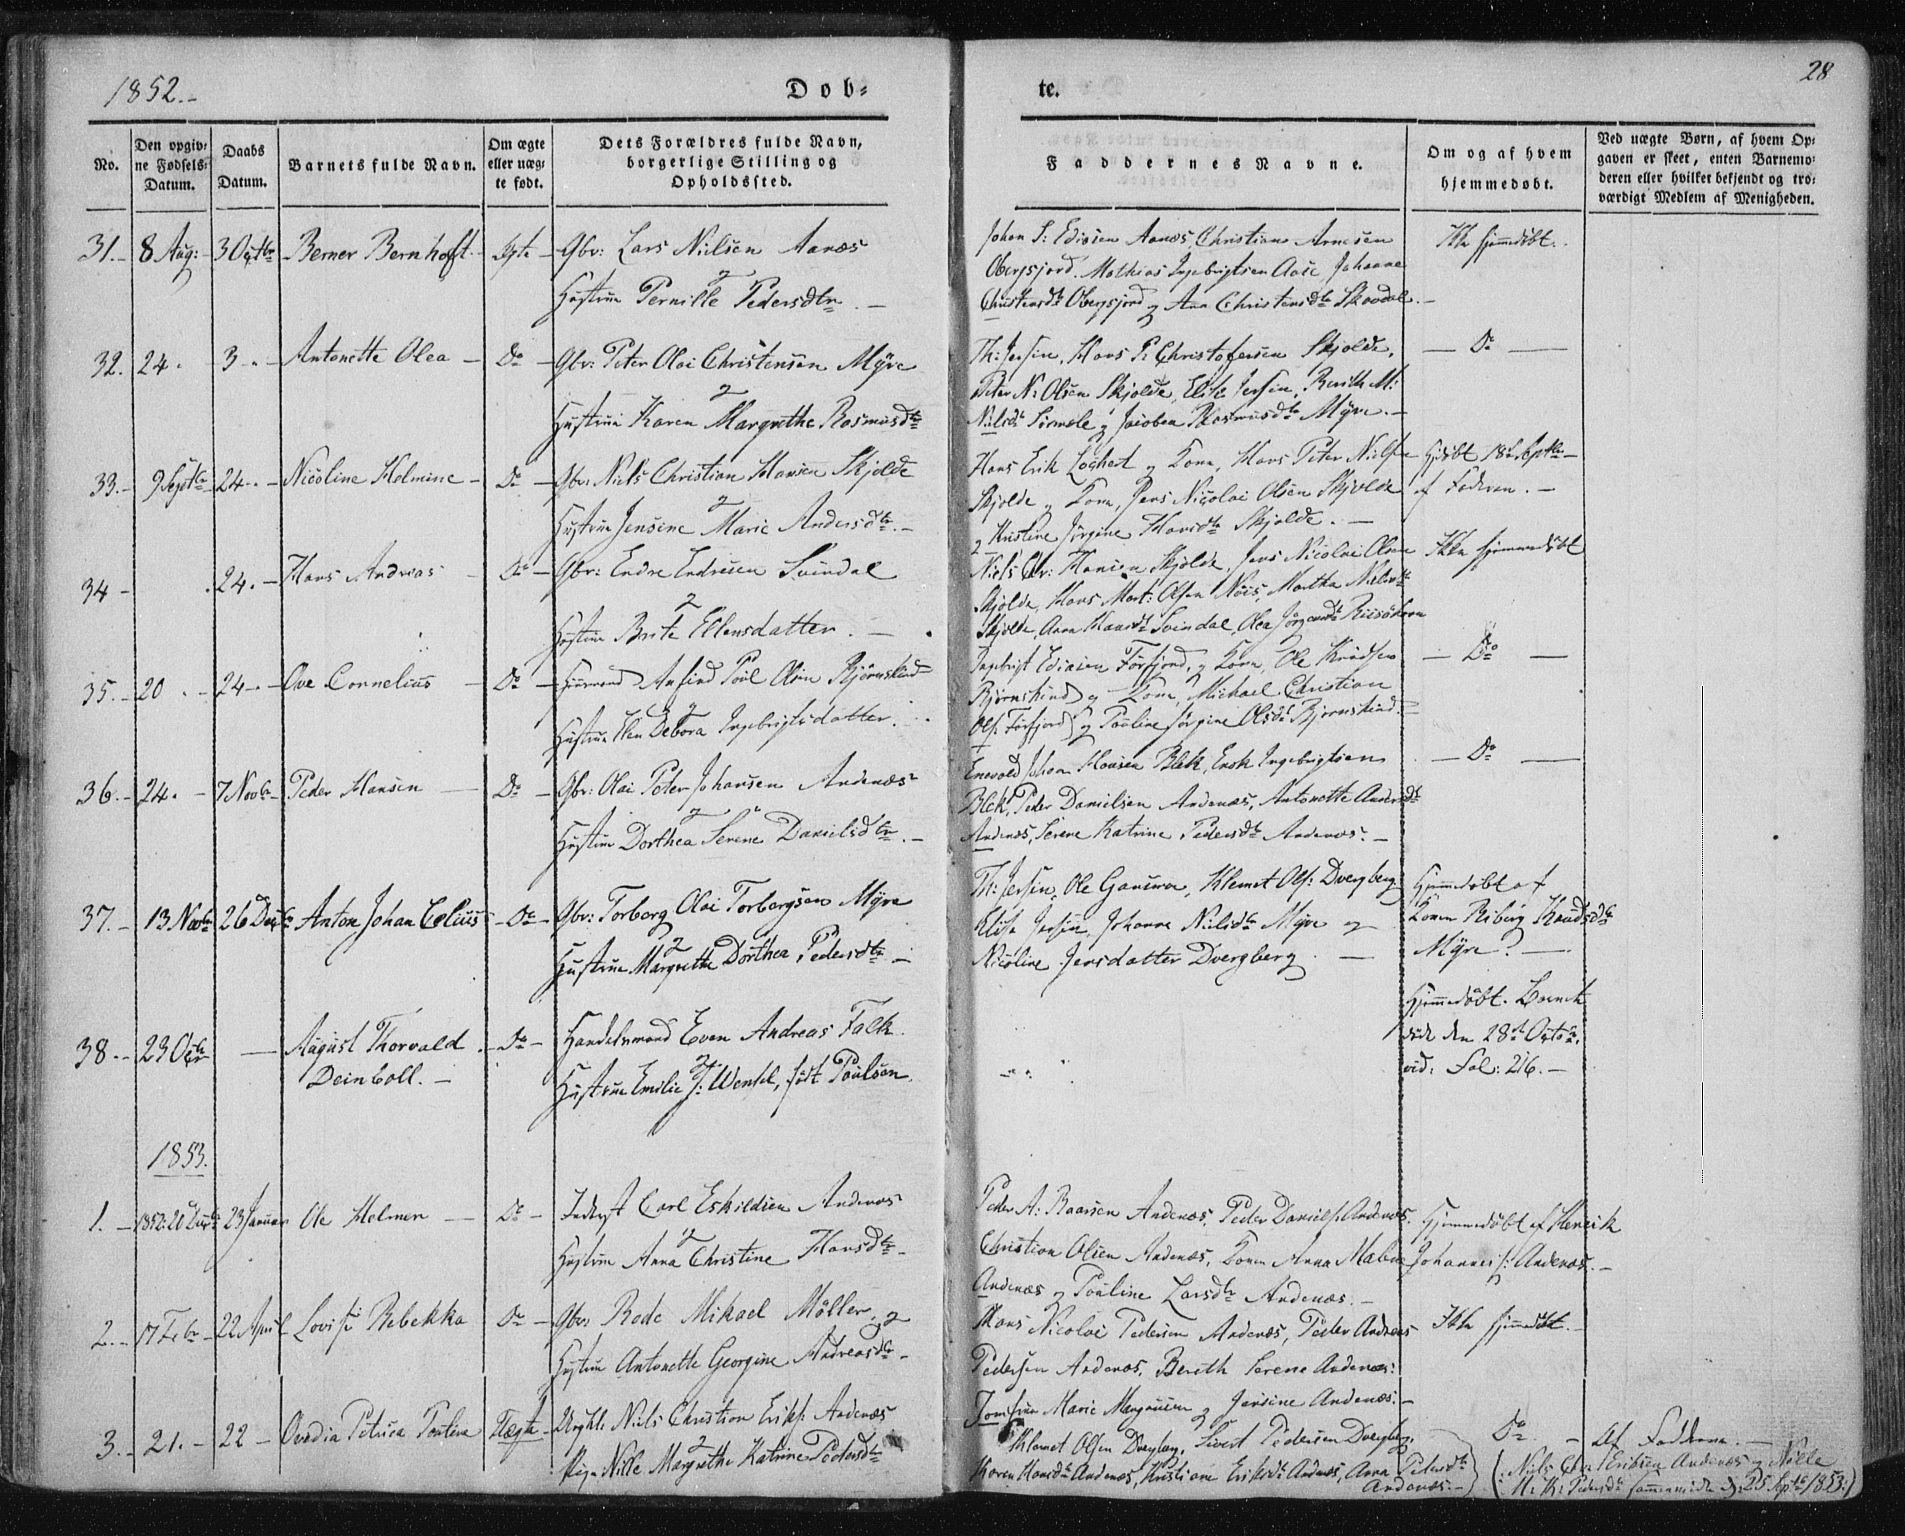 1852.-
Dob-
te.
28
No.
Den opgiv-
ne Fødsels-
Datum.
Daabs
Datum.
Barnets fulde Navn.
Om ægte
eller uæg-
te født.
Dets Forældres fulde Navn,
borgerlige Stilling og
Opholdssted.
Faddernes Navne.
Om og af hvem
hjemmedøbt.
Ved uægte Børn, af hvem Op-
gaven er skeet, enten Barnemo-
deren eller hvilket bekjendt og tro-
værdigt Medlem af Menigheden.
31.- 8 Aug: 3 Octbr Berner Bernhoft. Ægte Gbr: Lars Nielsen Aanæs
&
Hustrue Pernille Pedersdtr.
Johan S: Edisen Aanæs, Christian Arnesen
Obergsjord. Mathias Ingebrigtsen Aase, Johanne
Christensdtr Obergsjord og Ana Christensdtr Skovdal.
Ikke hjemmedøbt.
32. 24. 3.- Antonette Olea Do Gbr: Peter Olai Christensen Myre
&
Hustrue Karen Margrethe Rasmusdtr
Th: Jersin, Hans P: Christofersen Skjolde,
Peter N: Olsen Skjolde, Elise Jersin, Berith M:
Nielsdtr og Jacobea Rasmusdtr Myre.-
Do
33.- 9 Septbr 24.- Nicoline Helmine Do Gbr: Niels Christian Hansen Skjolde
&
Hustrue Jensine Marie Andersdtr.-
Hans Erik Lochert og Kone, Hans Peter Nielsen
Skjolde og Kone, Jens Nicolai Olsen Skjolde
& Kristine Jørgine Hansdtr Skjolde.-
Hjdøbt 18de Septbr
af Faderen.-
34 - 24.- Hans Andreas Do Gbr: Endre Endresen Svindal
&
Hustrue Brite Ellensdatter.-
Niels Chr: Hansen Skjolde, Jens Nicolai Olsen
Skjolde, Hans Mart: Olsen Næss, Martha Nielsdtr
Skjolde, Anna Svindal, Olea Jørgensdtr
Ikke hjemmedøbt
35.- 20. 24.- Ove Cornelius Do Ansind Poul Olsen Bjørnskind
&
Hustrue Elen Debora Ingebrigtsdatter.
Ingebrigt Edissen Forfjord, og Kone, Ole Knudsen
Bjørnskind og Kone, Michael Christian
Ols: Forfjord og Pauline Jørgine Olsdtr Bjørnskind.
Do
36.- 24.- 7 Novbr Peder Hansen Do Gbr: Olai Peter Johansen Andenæs
&
Hustrue Dorthea Serene Danielsdtr.-
Enevold Johan Hansen Blek, Enok Ingebrigtsen
Blek, Peder Danielsen Andenæs, Antonette Andersdtr
Andenæs, Serene Katrine Pedersdtr Andenæs.-
Do
37.- 13 Novbr 26 Decbr Anton Johan Celius Do Gbr: Torberg Olai Torbergsen Myre
&
Hustrue Margrethe Dorthea Pedersdtr.-
Th: Jersin, Ole Hansen, Klemet Ols: Dverberg
Elise Jersin, Johanne Nielsdtr Myre og
Nicoline Jensdatter Dverberg.
Hjemmedøbt af
Konen Riborg Knudsdtr
Myre.-
38.- 23 Octr August Thorvald
Deinboll.- Do Handelsmand Even Andreas Falk
&
Hustrue Emilie J: Wensel, født Poulson.
Hjemmedøbt. Barnet
døde den 28de Octobr
vid: Fol: 216.-
1853.
1.- 1852: 20 Decbr 23 Januar Ole Helmer Do Inderst Carl Eskildsen Andenæs
&
Hustrue Anna Christine Hansdtr.
Peder A: Baarsen Andenæs, Peder Daniels: Andenæs,
Christian Olsen Andenæs, Konen Anna Malene
Andenæs og Pauline Larsdtr Andenæs.-
Hjemmedøbt af Henrik
Johannes: Andenæs.-
2.- 17 Febr 22 April Lovise Rebekka Do Gbr Rode Mikael Møller, og
Hustrue Antonette Georgine Andreasdtr
Hans Nicolai Pedersen Andenæs, Peder Andreas
Pedersen Andenæs, Bereth Serene Andenæs:
Jomfrue Marie og Jensine Andenæs.-
Ikke hjemmedøbt.
3.- 21.- 22 Ovedia Petrica Uægte Ungkl: Niels Christian Eriks: Andenæs
&
Pige Nille Margrethe Katrine Pedersdtr
Klemet Olsen Dverberg, Sivert Pedersen Dverberg,
Karen Hansdtr Andenæs, Kristiane Eriksdtr Andenæs, Anna Petersdtr
Andenæs.-
Do
Af Fadderne.-
(: Niels Chr: Eriksen Andenæs og Nille
M: K: Pedersdtr d: 25 Septbr 1853:)